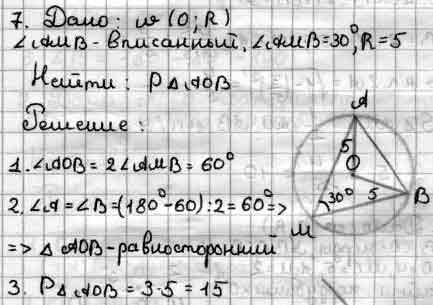 7. Дано: ω (O; R)
∠AMB - вписанный, ∠AMB = 30°, R = 5
Найти: P△AOB
Решение:
1. ∠AOB = 2∠AMB = 60°
2. ∠A = ∠B = (180° - 60) : 2 = 60° =>
=> △AOB - равносторонний
3. P△AOB = 3·5 = 15
A
5
O
30°
5
B
M